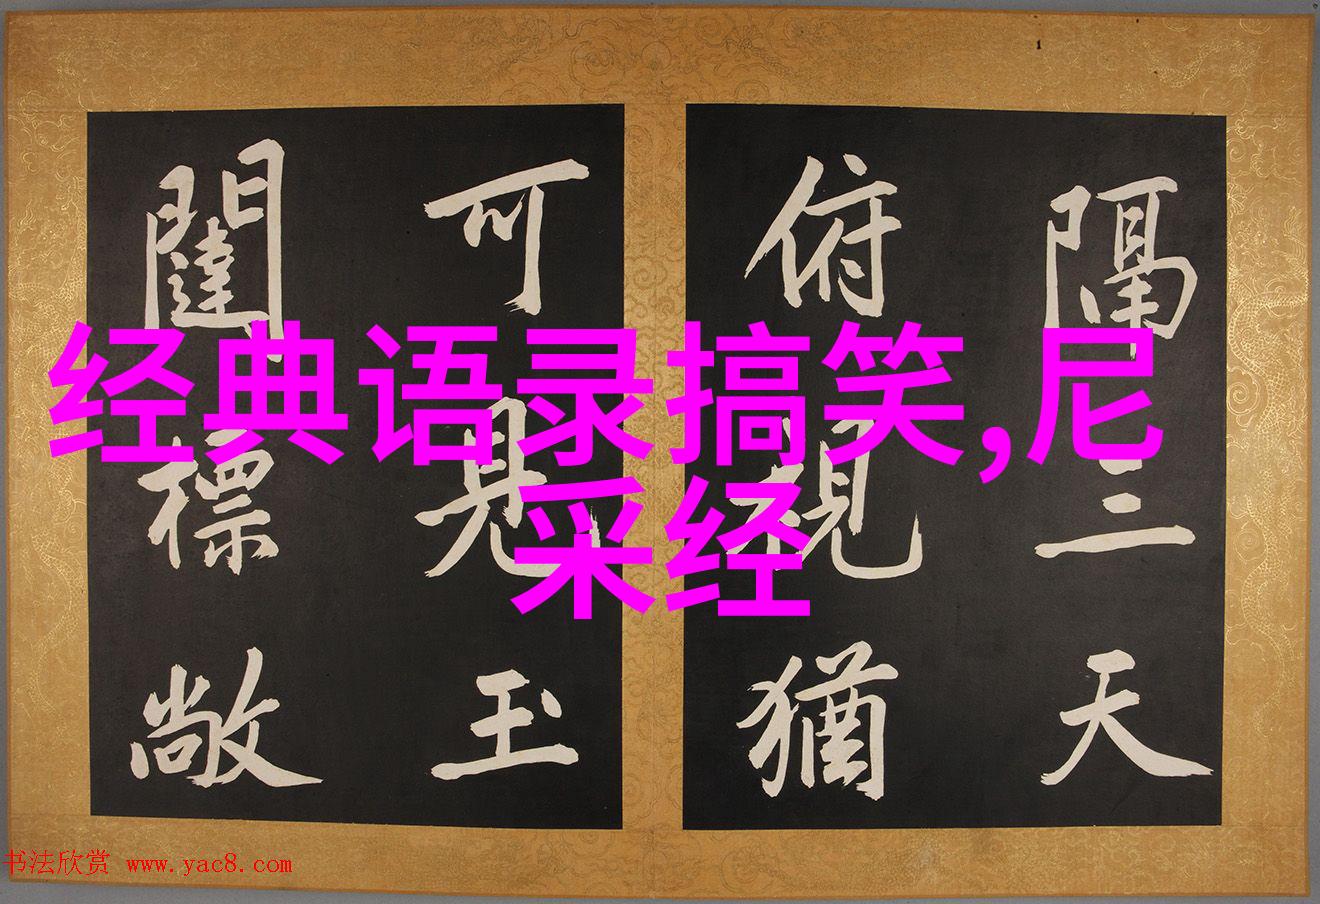 经典语录搞笑,尼
采经
隔三天
俯視猶
可見玉
闥標敞
书法欣赏 www.yac8.com